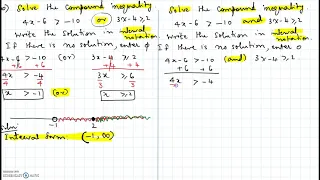 Solve the Compound inequality
4x-6 > -10 or 3x-4 ≥ 2
Write the Solution in interval notation
If there is no solution, enter ϕ
4x-6 > -10 (or) 3x-4 ≥ 2
+6 +6 +4 +4
4x/4 > -4/4 3x/3 ≥ 6/3
x > -1 (or) x ≥ 2
-1 2
Interval form (-1, ∞)
Solve the compound inequality
4x-6 > -10 and 3x-4 ≥ 2
Write the Solution in interval notation
If there is no solution, enter
4x-6 > -10 (and) 3x-4 ≥ 2
+6 +6
4x > -4